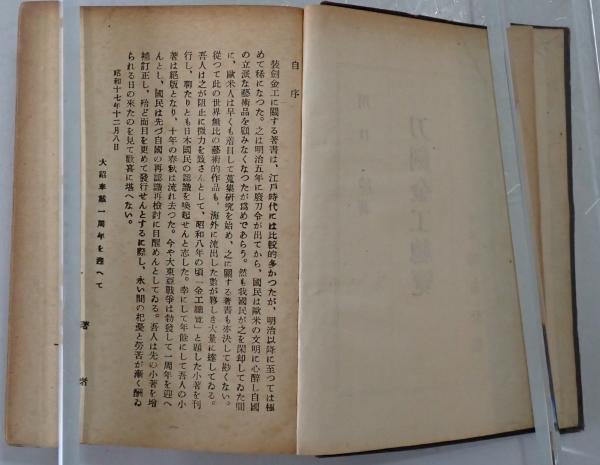 自序
裝劍金工に關する著書は、江戸時代には比較的多かつたが、明治以降に至つては極
めて稀になつた。之は明治五年に廢刀令が出てから、國民は歐米の文明に心醉し自國
の立派な藝術品を顧みなくなつたが爲めであらう。然も我國民が之を閑却してゐた間
に、歐米人は早くも着目して蒐集研究を始め、之に關する著書も亦決して尠くない。
從つて此の世界無比の藝術的作品も、海外に流出した數が夥しき大量に達してゐる。
吾人は之が阻止に微力を致さんとして、昭和八年の頃「金工總覽」と題した小著を刊
行し、聊たりとも日本國民の認識を喚起せんと志した。幸にして年餘にして吾人の小
著は絕版となり、十年の春秋は流れ去つた。今や大東亞戰爭は勃發して一周年を迎へ
んとし、國民は先づ自國の再認識再檢討に目醒めんとしてゐる。吾人は先の小著を增
補訂正し、殆ど面目を更めて發行せんとするに際し、永い間の杞憂と勞苦が漸く酬ゐ
られる日の來たのを見て歡喜に堪へない。
昭和十七年十二月八日
大詔奉戴一周年を迎へて
著者
刀劍金工總覽